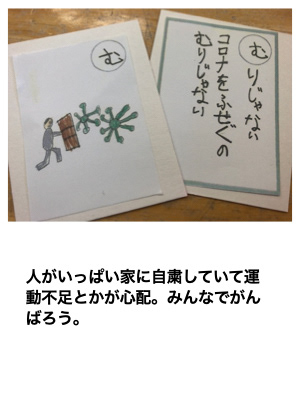 む
むりじゃない
コロナをふせぐの
むりじゃない
人がいっぱい家に自粛していて運
動不足とかが心配。みんなでがん
ばろう。